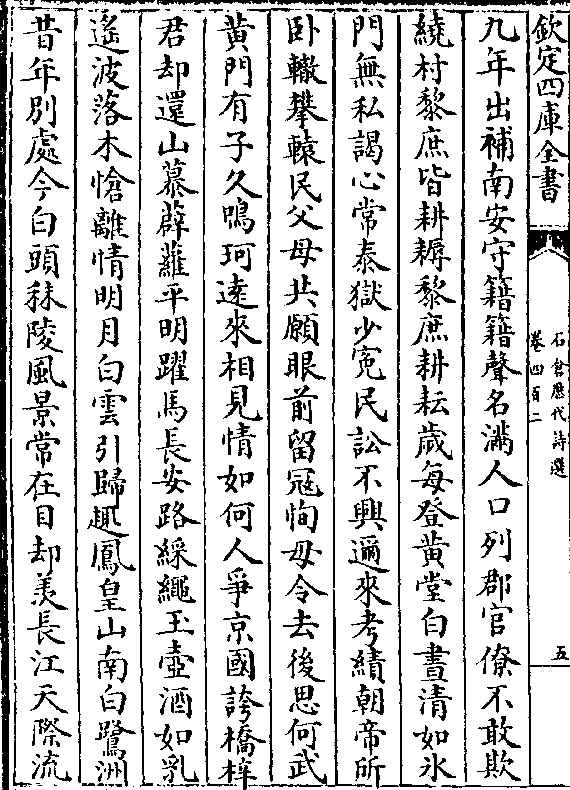 欽定四庫全書
石倉歷代詩選
卷四百二
五
九年出補南安守籍籍聲名滿人口列郡官僚不敢欺
繞村黎庶皆耕耨黎庶耕耘歲每登黃堂白晝清如氷
門無私謁心常泰獄少寃民訟不興邇來考績朝帝所
卧轍攀轅民父母共願眼前留冦恂毋令去後思何武
黃門有子久鳴珂遠來相見情如何人爭京國誇橋梓
君却還山慕薜蘿平明躍馬長安路綵繩玉壺酒如乳
遙波落木愴離情明月白雲引歸趣鳳皇山南白鷺洲
昔年別處今白頭秣陵風景常在目却羡長江天際流